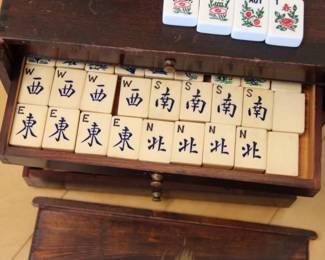 AUT
W W W W S S S S
西 西 西 西 南 南 南 南
E E E E N N N N
東 東 東 東 北 北 北 北